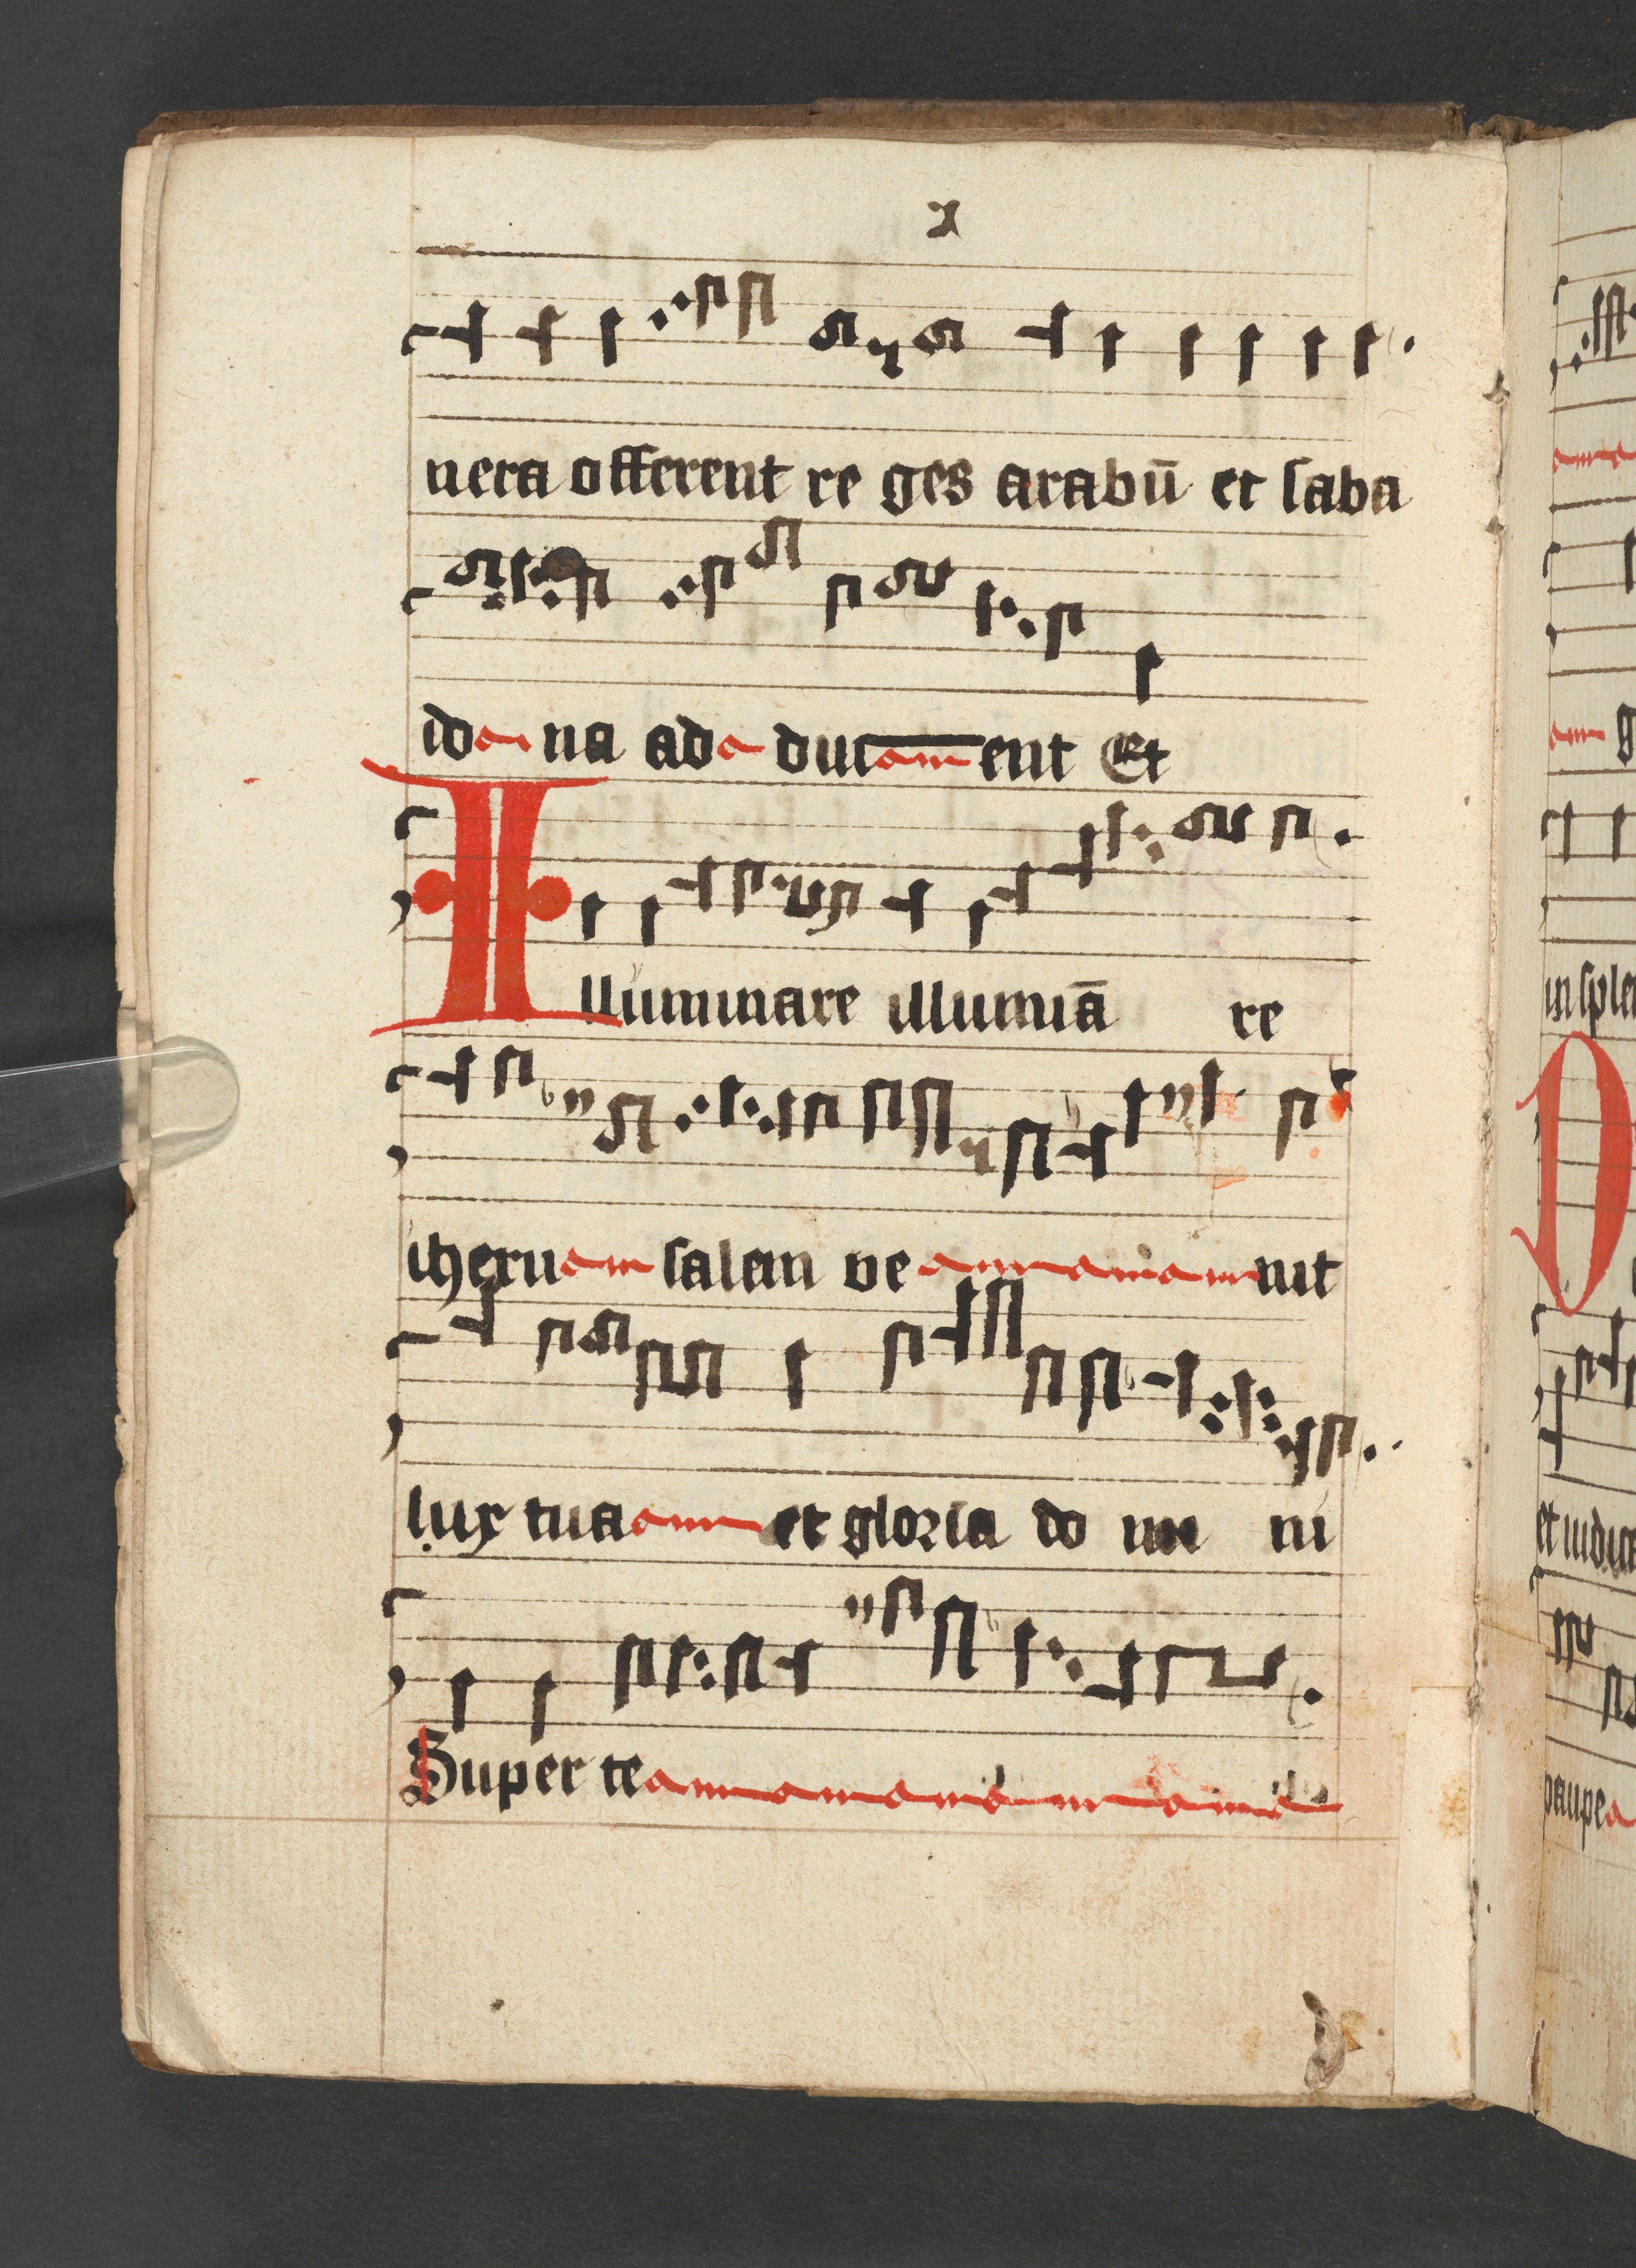 x
nera offerent re ges arabū et saba
ida na ad ducent Et
Illuminare illuminā re
iheru salem ve nit
lux tua et gloria do mi ni
Super te
in splen
et iudica
paupe